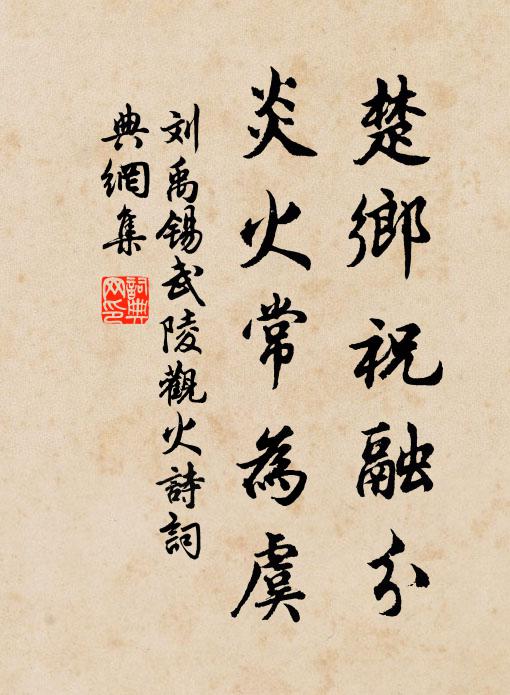 楚鄉祝融分
炎火常為虞
刘禹锡武陵觀火詩詞
典網集
詞典
网印